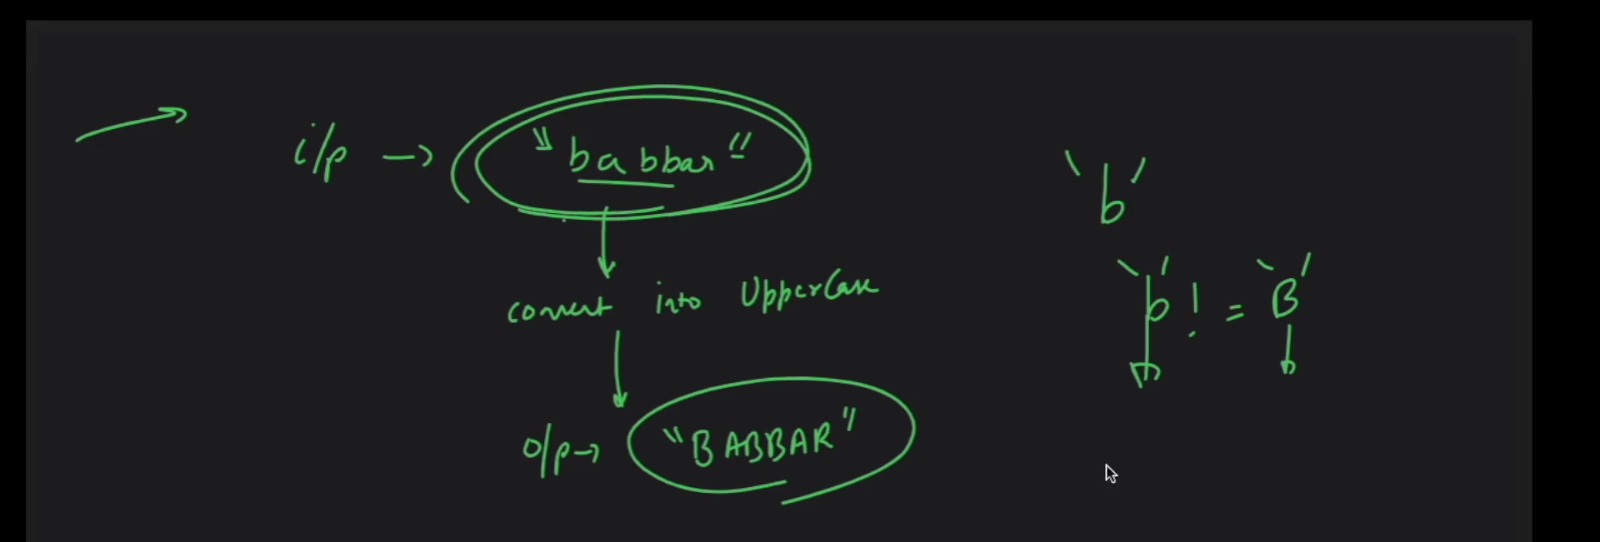 i/p → "babbar"
convert into UpperCase
o/p → "BABBAR"
'b'
'b' != 'B'